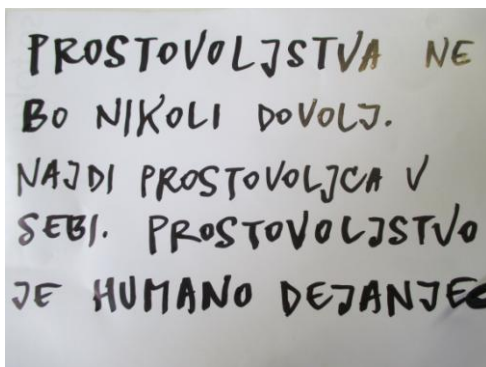 PROSTOVOLJSTVA NE
BO NIKOLI DOVOLJ.
NAJDI PROSTOVOLJCA V
SEBI. PROSTOVOLJSTVO
JE HUMANO DEJANJE